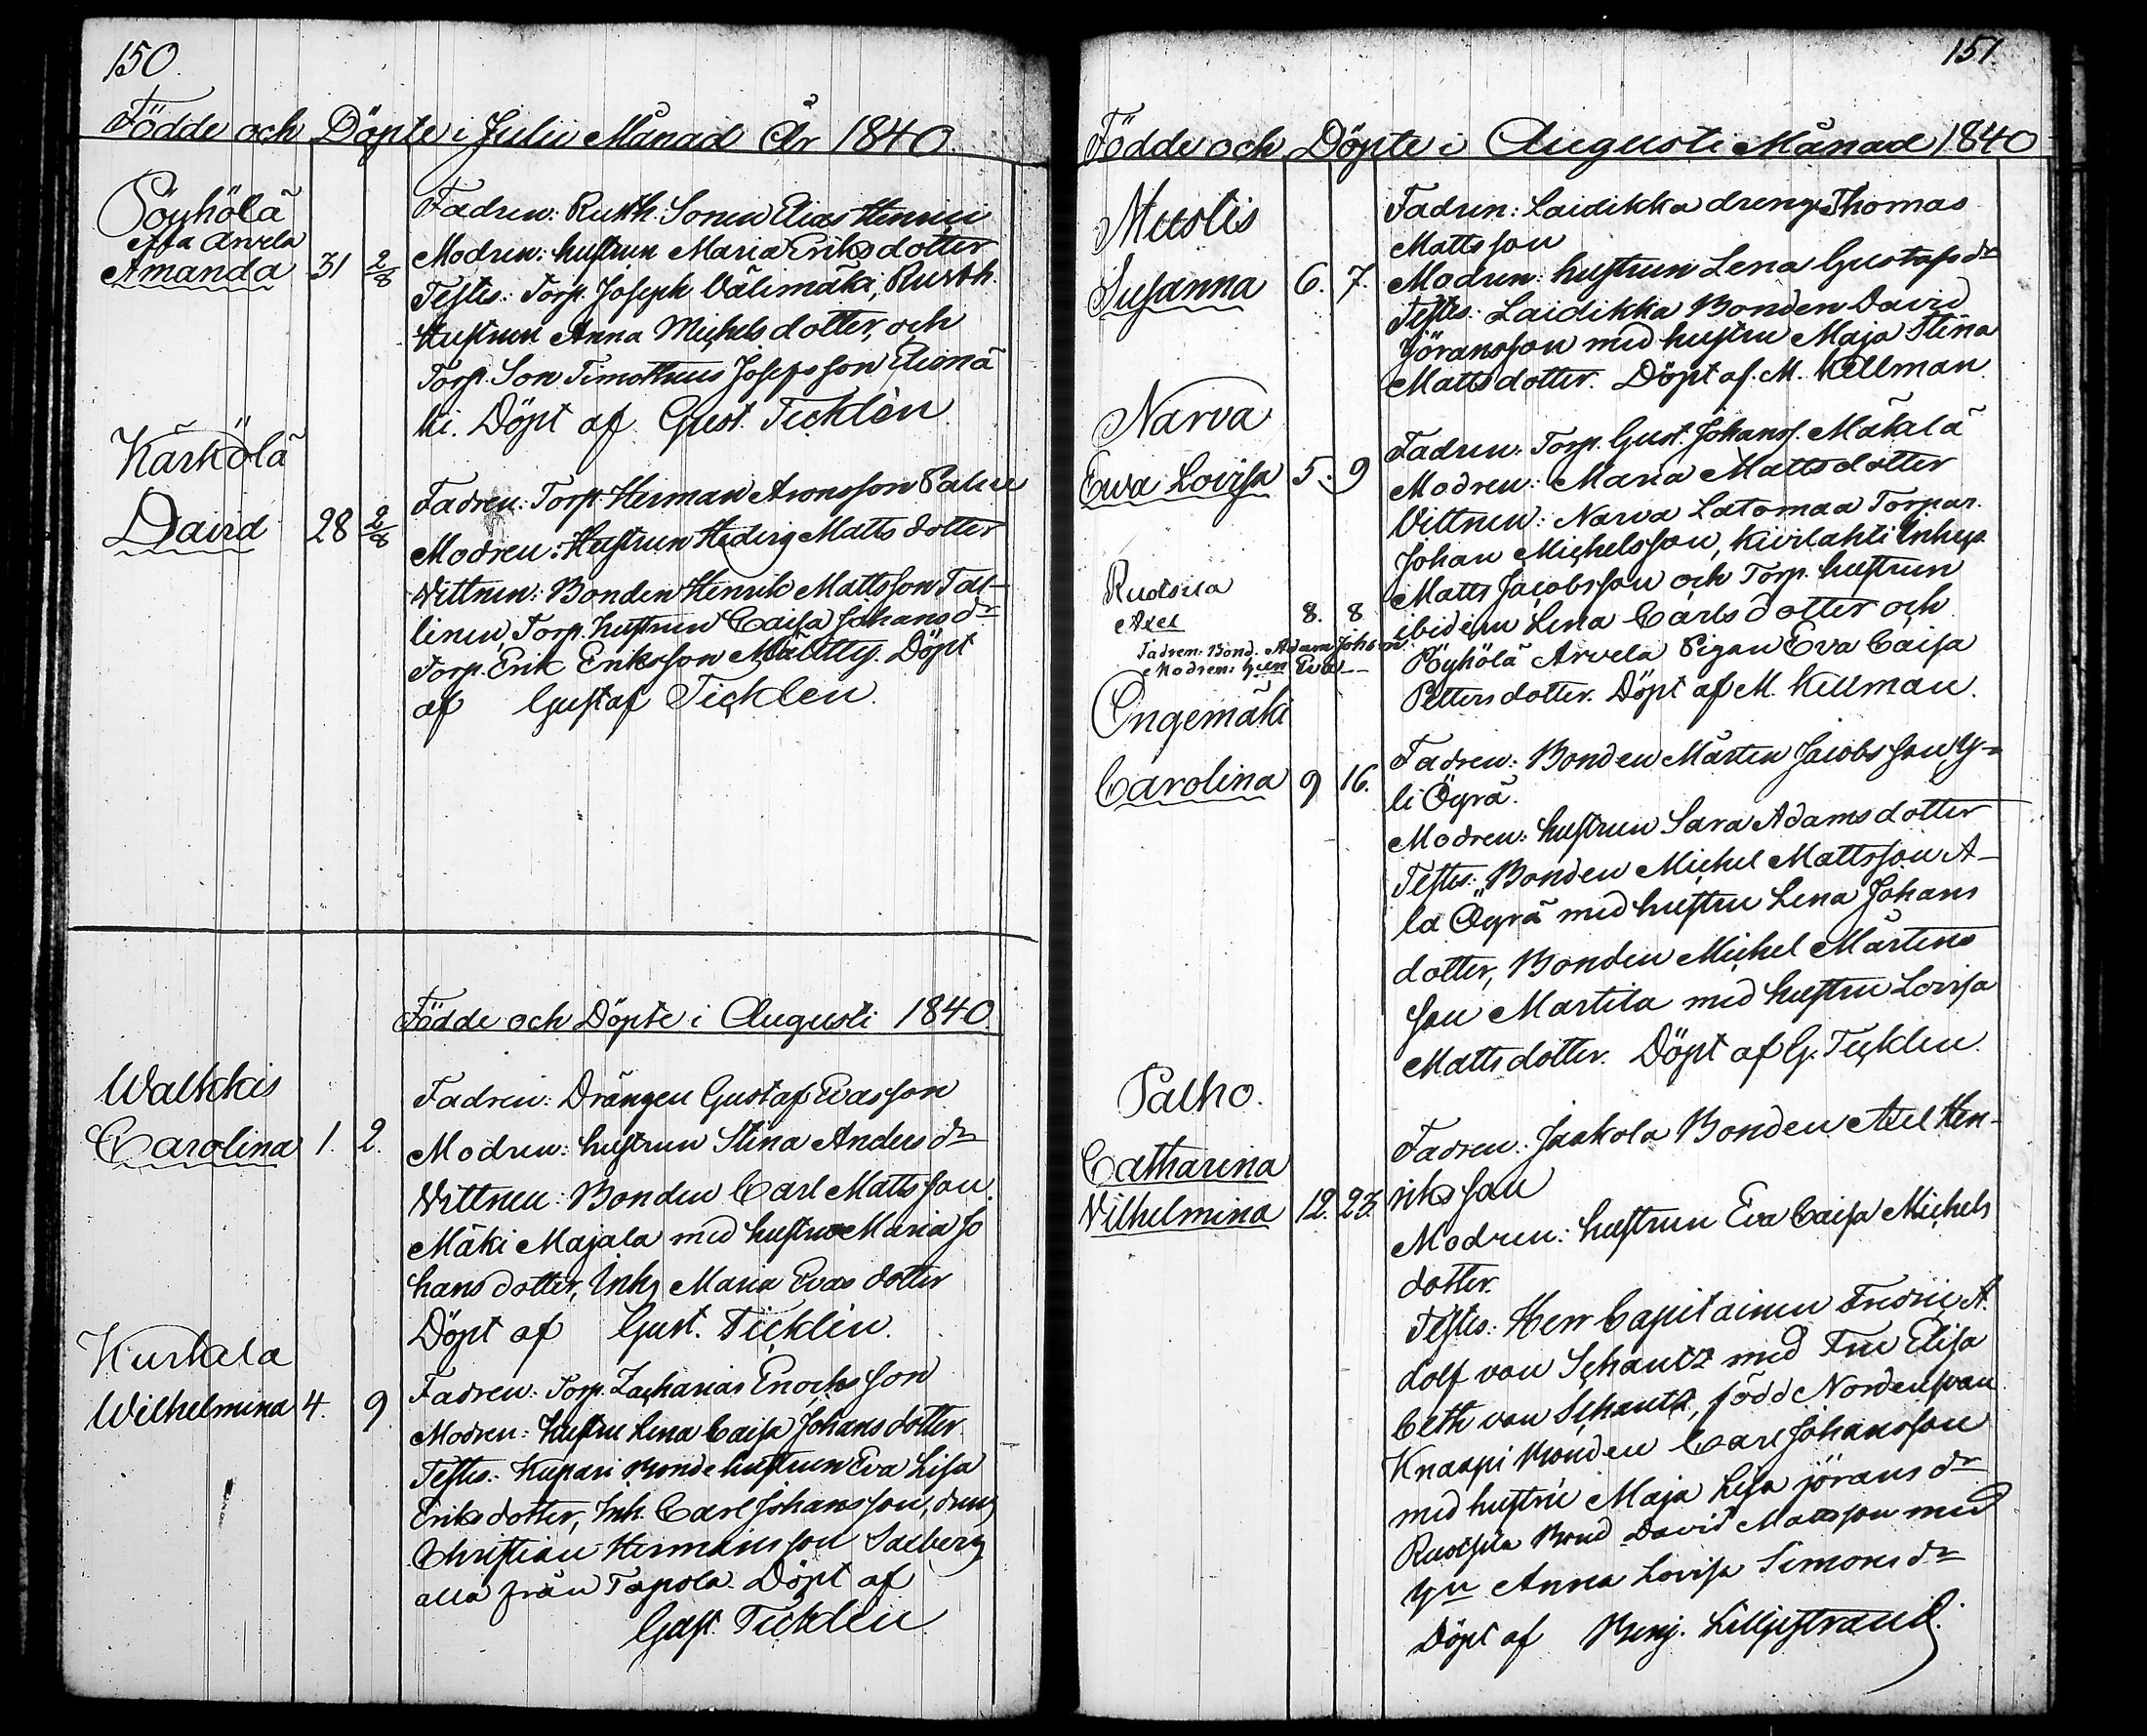 150.
Födde och Döpte i Julii Månad År 1840.
Pöyhölä
Arvela
Amanda 31 2/8
Fadren: Rusth. Sonen Elias Henrici
Modren: hustrun Maria Eriksdotter
Testes: Torp. Joseph Välimäki, Rusth.
Hustrun Anna Michelsdotter, och
Torp. Son Timotheus Josepsson Elomä
ki. Döpt af Gust. Ticklèn.
Kärkölä
David 28 2/8
Fadren: Torp. Herman Aronsson
Modren: Hustrun Hedvig Mattsdotter
Vittnen: Bonden Henrik Mattsson Tal-
linen, Torp. hustrun Caisa Johansdr
Torp. Erik Eriksson Döpt
af Gustaf Ticklen.
Födde och Döpte i Augusti 1840
Walkkis
Carolina 1. 2.
Fadren: Drängen Gustaf Evasson
Modren: hustrun Stina Andersdr
Vittnen: Bonden Carl Mattsson
Mäki Majala med hustru Maria Jo
hansdotter, Inh. Maria Evasdotter
Döpt af Gust. Ticklèn.
Kurkela
Wilhelmina 4. 9.
Fadren: Torp. Zacharias Enochsson
Modren: Hustru Lena Caisa Johansdotter.
Testes: Kupari Bondehustrun Eva Lisa
Eriksdotter, Inh. Carl Johansson, dreng
Christian Hermansson Salberg
alla från Tapola. Döpt af
Gust. Ticklèn
151.
Födde och Döpte i Augusti Månad 1840
Mustis
Susanna 6. 7.
Fadren: Laidikka dreng Thomas
Mattsson
Modren: hustrun Lena Gustafsdr
Testes: Laidikka Bonden David
Jöransson med hustru Maja Stina
Mattsdotter. Döpt af M. Kellman.
Narva
Ewa Lovisa 5. 9
Fadren: Torp. Gust. Johanss. Mäkälä
Modren: Maria Mattsdotter
Vittnen: Narva Latomaa Torpar.
Johan Michelsson, Kivilahti Inhys
Matts Jacobsson och Torp. hustrun
ibidem Lena Carlsdotter och
Pöyhölä Arvela Pigan Eva Caisa
Pettersdotter. Döpt af M. Kellman.
Ruotsila
Axel 8. 8
Fadren: Bond. Adam Johsson.
Modren: Hun Eva —
Ongemäki
Carolina 9 16.
Fadren: Bonden Mårten Jacobsson Y-
li Äyrä.
Modren: hustrun Sara Adamsdotter
Testes: Bonden Michel Mattsson A-
la Äyrä med hustru Lena Johans
dotter, Bonden Michel Mårtens
son Martila med hustru Lovisa
Mattsdotter. Döpt af G. Ticklen.
Palho.
Catharina
Vilhelmina 12. 23.
Fadren: Jaakola Bonden Axel Hen-
riksson
Modren: hustrun Eva Caisa Michels
dotter.
Testes: Herr Capitainen Fredric A.
dolf von Schantz med Fru Elisa
beth von Schantz, född Nordensvan
Knaapi Bonden Carl Johansson
med hustru Maja Lisa Jöransdr
Ruotsila Bond David Mattsson med
Hu Anna Lovisa Simonsdr
Döpt af Benj. Lilljestrand.